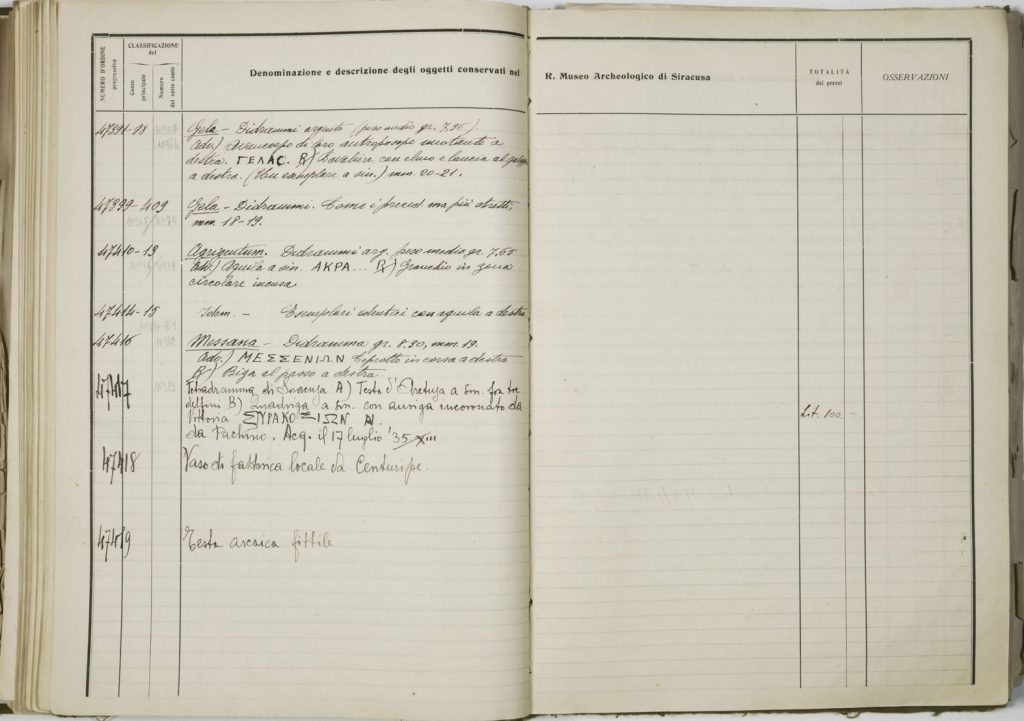 NUMERO D'ORDINE progressivo
CLASSIFICAZIONE del
Conto principale
Numero del sotto conto
Denominazione e descrizione degli oggetti conservati nel R. Museo Archeologico di Siracusa
TOTALITÀ dei prezzi
OSSERVAZIONI
47391-98 Gela - Didrammi argento (peso medio gr. 7,95).
Adv.) di toro antroposopo nuotante a
destra. ΓΕΛΑΣ. R) Cavaliere con elmo e lancia al
a destra. (Un esemplare a sin.) mm. 20-21.
47399-409 Gela - Didrammi. Come i preced. ma più stretti,
mm. 18-19.
47410-13 Agrigentum. Didrammi arg. peso medio gr. 7,65
Adv.) Aquila a sin. ΑΚΡΑ... R) Granchio in zona
circolare incusa
47414-15 Idem. - Esemplari identici con aquila a destra
47416 Messana - Didramma gr. 8.30, mm. 19.
Adv.) ΜΕΣΣΕΝΙΩΝ Leprotto in corsa a destra
R) Biga al passo a destra.
47417 Tetradramma di Siracusa A) Testa d'Aretusa a sin. fra tre
delfini B) Quadriga a sin. con auriga incoronato da
Vittoria ΣΥΡΑΚΟΣΙΩΝ Lit. 100. -
da Pachino. Acq. il 17 luglio '35 XIII
47418 Vaso di fabbrica locale da Centuripe.
47419 Testa arcaica fittile